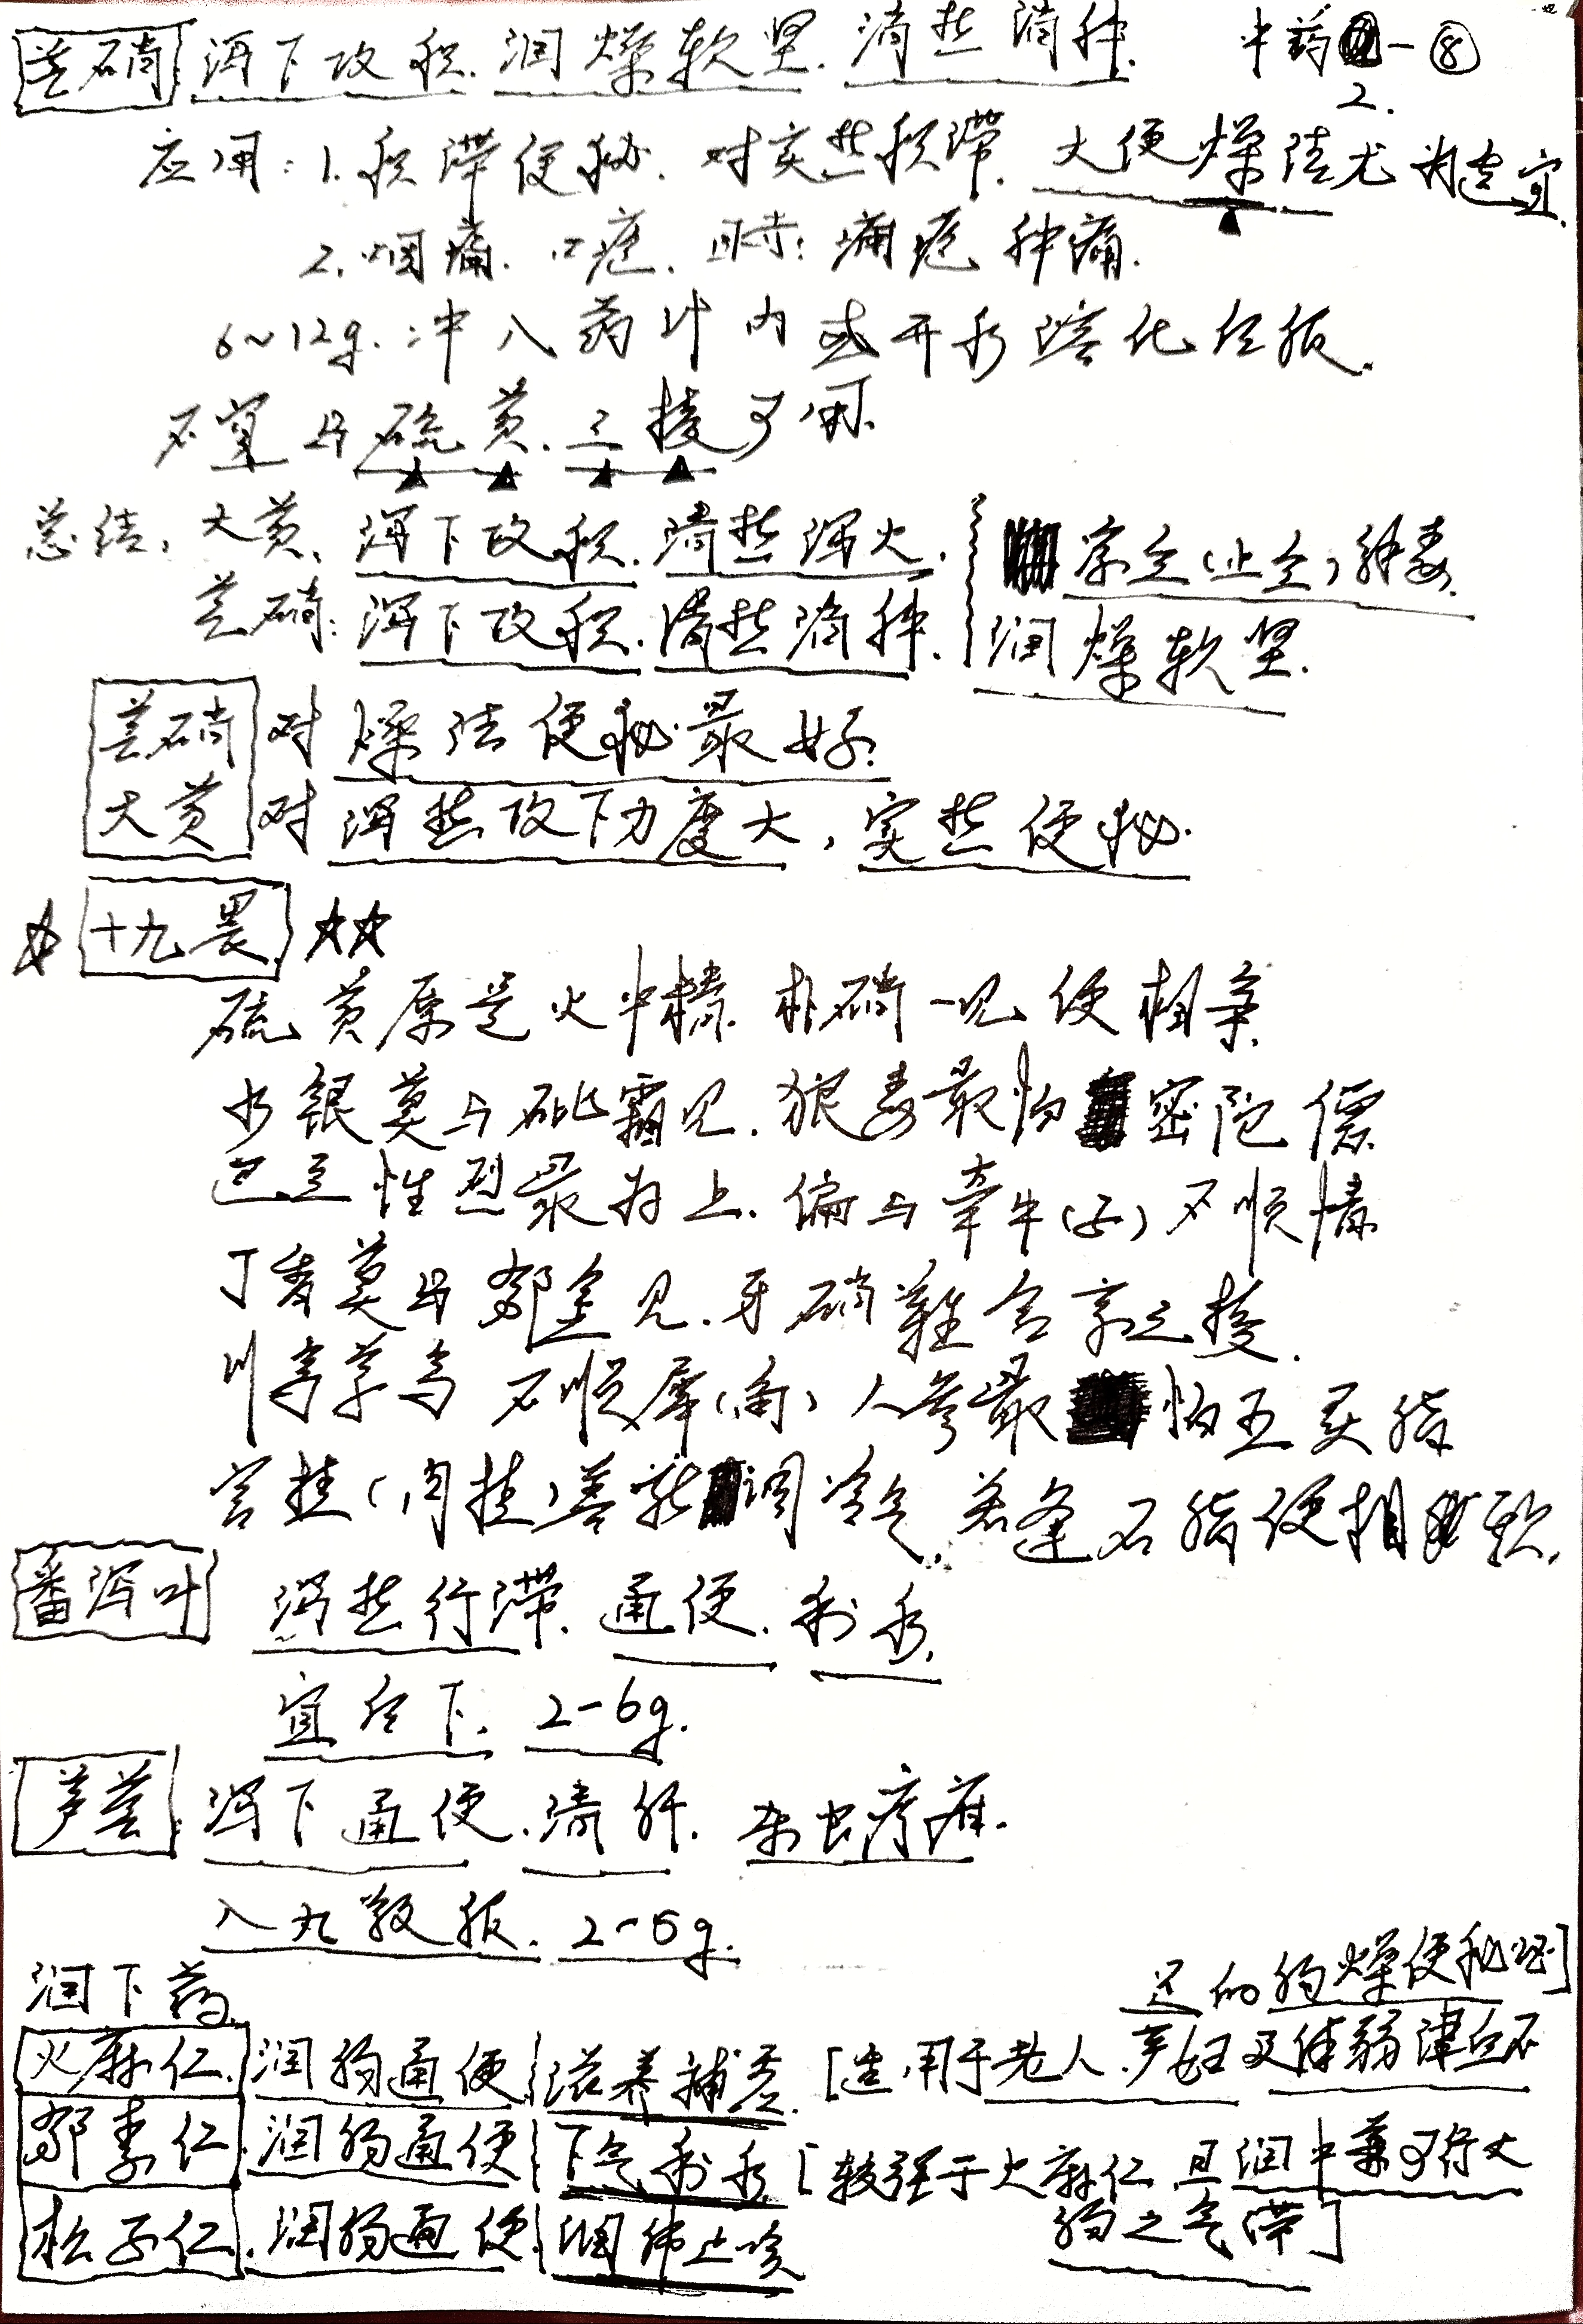 芒硝: 泻下攻积. 润燥软坚. 清热消肿. 中药2-⑧
应用: 1. 积滞便秘. 对实热积滞. 大便燥结尤为适宜.
2. 咽痛. 口疮. 目赤: 痈疮肿痛.
6~12g. 冲入药汁内或开水溶化后服.
不宜与硫黄. 三棱同用.
总结: 大黄: 泻下攻积. 清热泻火. 凉血(止血)解毒.
芒硝: 泻下攻积. 清热消肿. 润燥软坚.
芒硝 对燥结便秘最好.
大黄 对泻热攻下力度大, 实热便秘.
☆ 十九畏 ☆☆
硫黄原是火中精. 朴硝一见便相争.
水银莫与砒霜见. 狼毒最怕密陀僧
巴豆性烈最为上. 偏与牵牛(子)不顺情
丁香莫与郁金见. 牙硝难合京三棱.
川乌草乌不顺犀(角) 人参最怕五灵脂
官桂(肉桂)善能调冷气. 若逢石脂便相欺.
番泻叶 泻热行滞. 通便. 利水.
宜后下. 2-6g.
芦荟: 泻下通便. 清肝. 杀虫疗疳.
入丸散服. 2-5g.
润下药.
足的肠燥便秘证]
火麻仁. 润肠通便 滋养补虚. [适用于老人. 产妇及体弱津血不
郁李仁. 润肠通便 下气利水. [较强于火麻仁 且润中兼可行大
肠之气滞]
松子仁. 润肠通便 润肺止咳